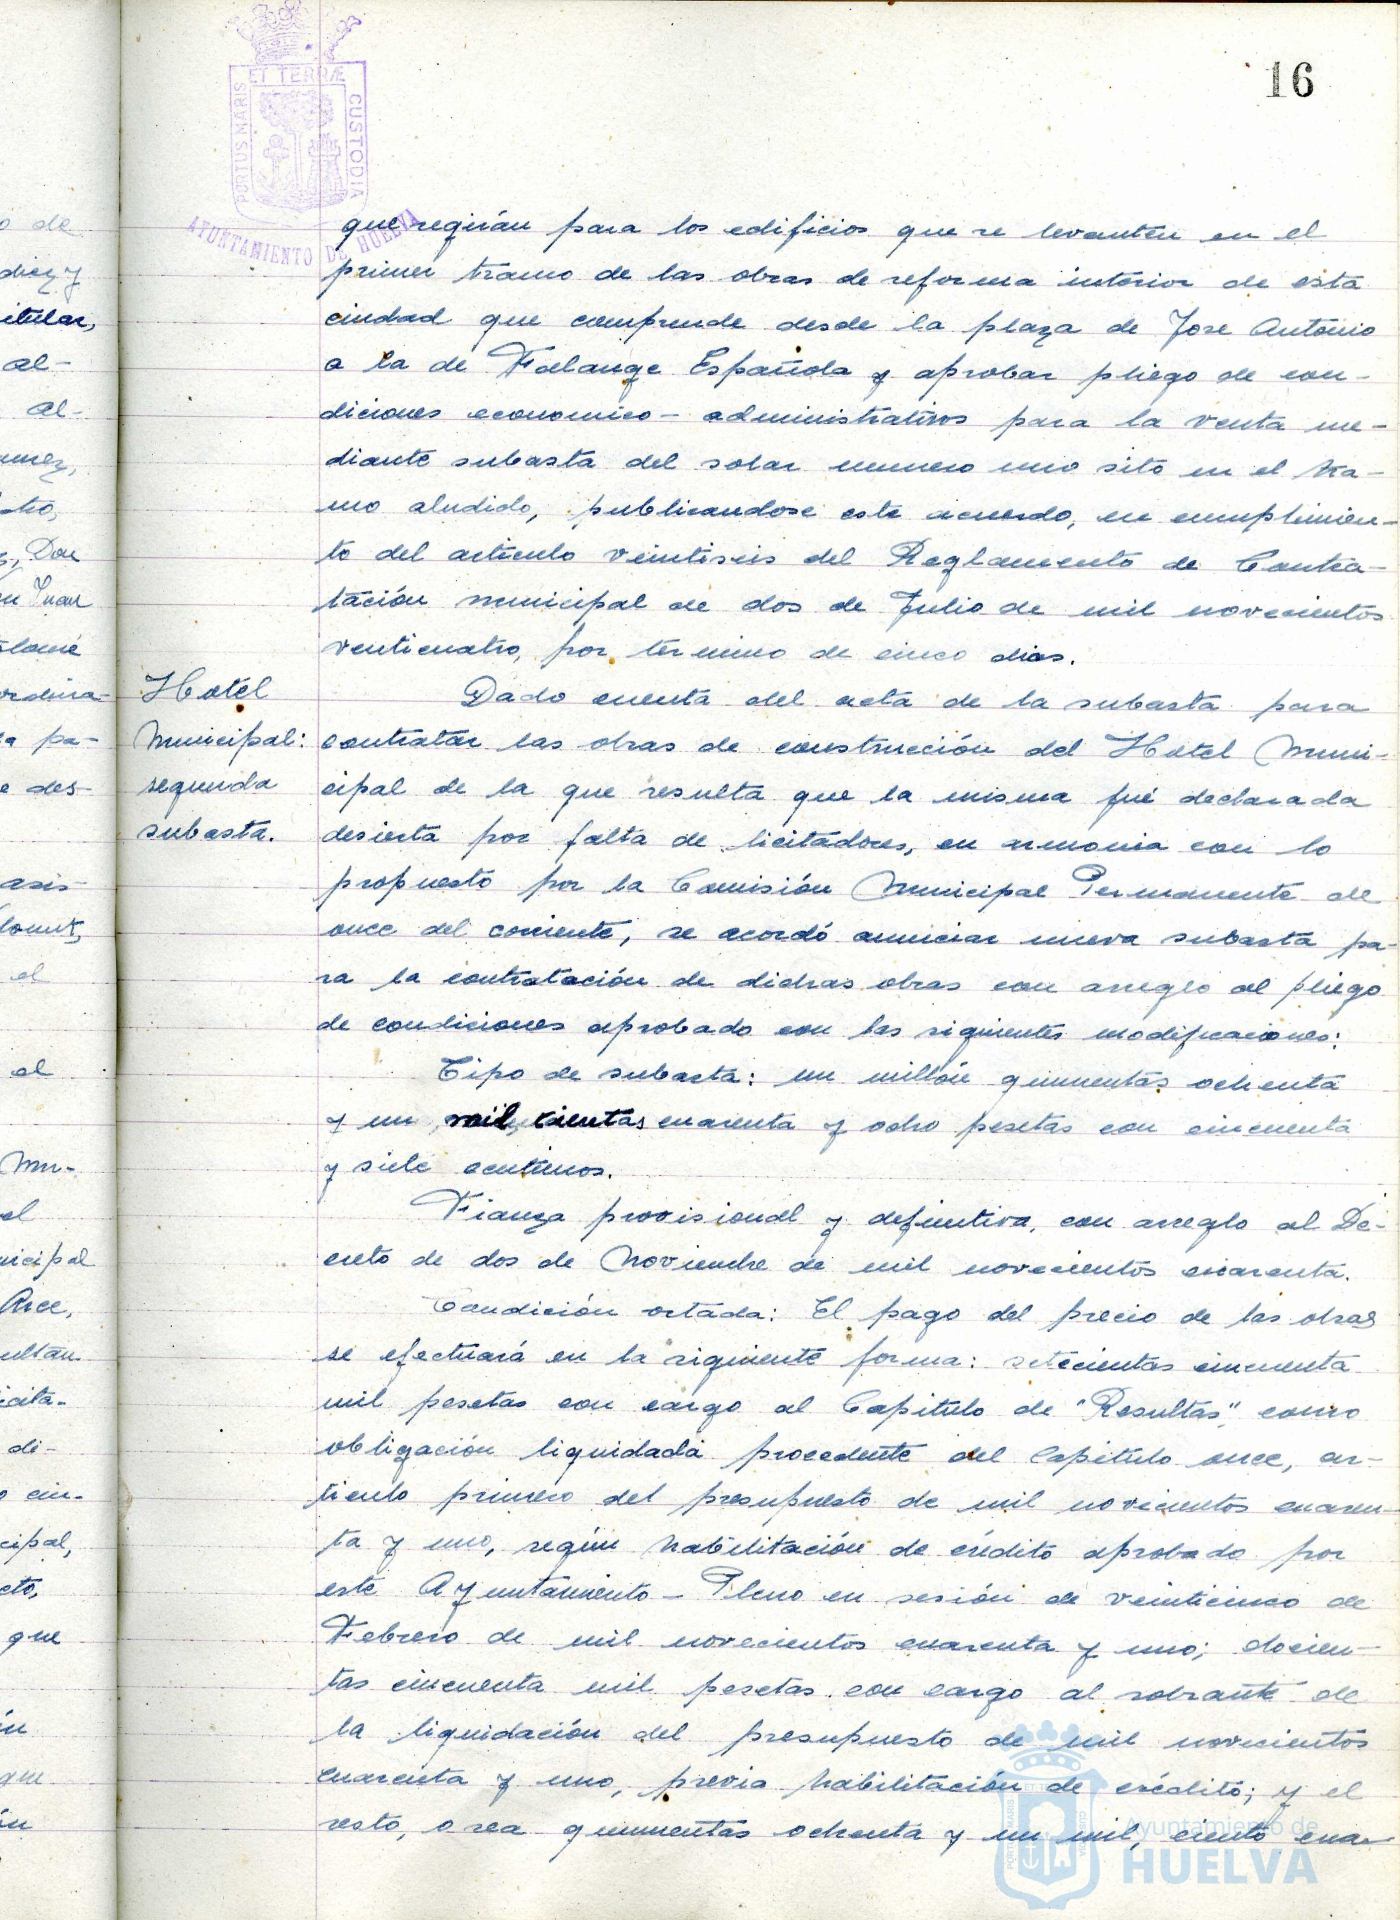 16
PORTUS MARIS ET TERRÆ CUSTODIA
AYUNTAMIENTO DE HUELVA
que regirán para los edificios que se levanten en el
primer tramo de las obras de reforma interior de esta
ciudad que comprende desde la plaza de Jose Antonio
a la de Falange Española y aprobar pliego de con-
diciones economico-administrativos para la venta me-
diante subasta del solar numero uno sito en el tra-
mo aludido, publicandose este acuerdo, en cumplimien-
to del articulo veintiseis del Reglamento de Contra-
tación municipal de dos de Julio de mil novecientos
venticuatro, por termino de cinco dias.
Hotel
Municipal:
segunda
subasta.
Dado cuenta del acta de la subasta para
contratar las obras de construcción del Hotel Muni-
cipal de la que resulta que la misma fué declarada
desierta por falta de licitadores, en armonia con lo
propuesto por la Comisión Municipal Permanente del
once del corriente, se acordó anunciar nueva subasta pa-
ra la contratación de dichas obras con arreglo al pliego
de condiciones aprobado con las siguientes modificaciones:
Tipo de subasta: un millón quinientas ochenta
y un mil, cientas cuarenta y ocho pesetas con cincuenta
y siete centimos.
Fianza provisional y definitiva, con arreglo al De-
creto de dos de Noviembre de mil novecientos cuarenta.
Condición octada: El pago del precio de las obras
se efectuará en la siguiente forma: setecientas cincuenta
mil pesetas con cargo al Capitulo de "Resultas", como
obligación liquidada procedente del Capitulo once, ar-
ticulo primero del presupuesto de mil novecientos cuaren-
ta y uno, según habilitación de crédito aprobado por
este Ayuntamiento-Pleno en sesión de veinticinco de
Febrero de mil novecientos cuarenta y uno; docien-
tas cincuenta mil pesetas con cargo al sobrante de
la liquidación del presupuesto de mil novecientos
cuarenta y uno, previa habilitación de crédito; y el
resto, o sea quinientas ochenta y un mil, ciento cua-
Ayuntamiento de
HUELVA
o de
diez y
itular,
al-
al-
Don
Juan
ordina-
pa-
e des-
asis-
el
el
Mu-
el
nicipal
Arce,
ultan
icita-
di-
o cin-
cipal,
cto,
que
que